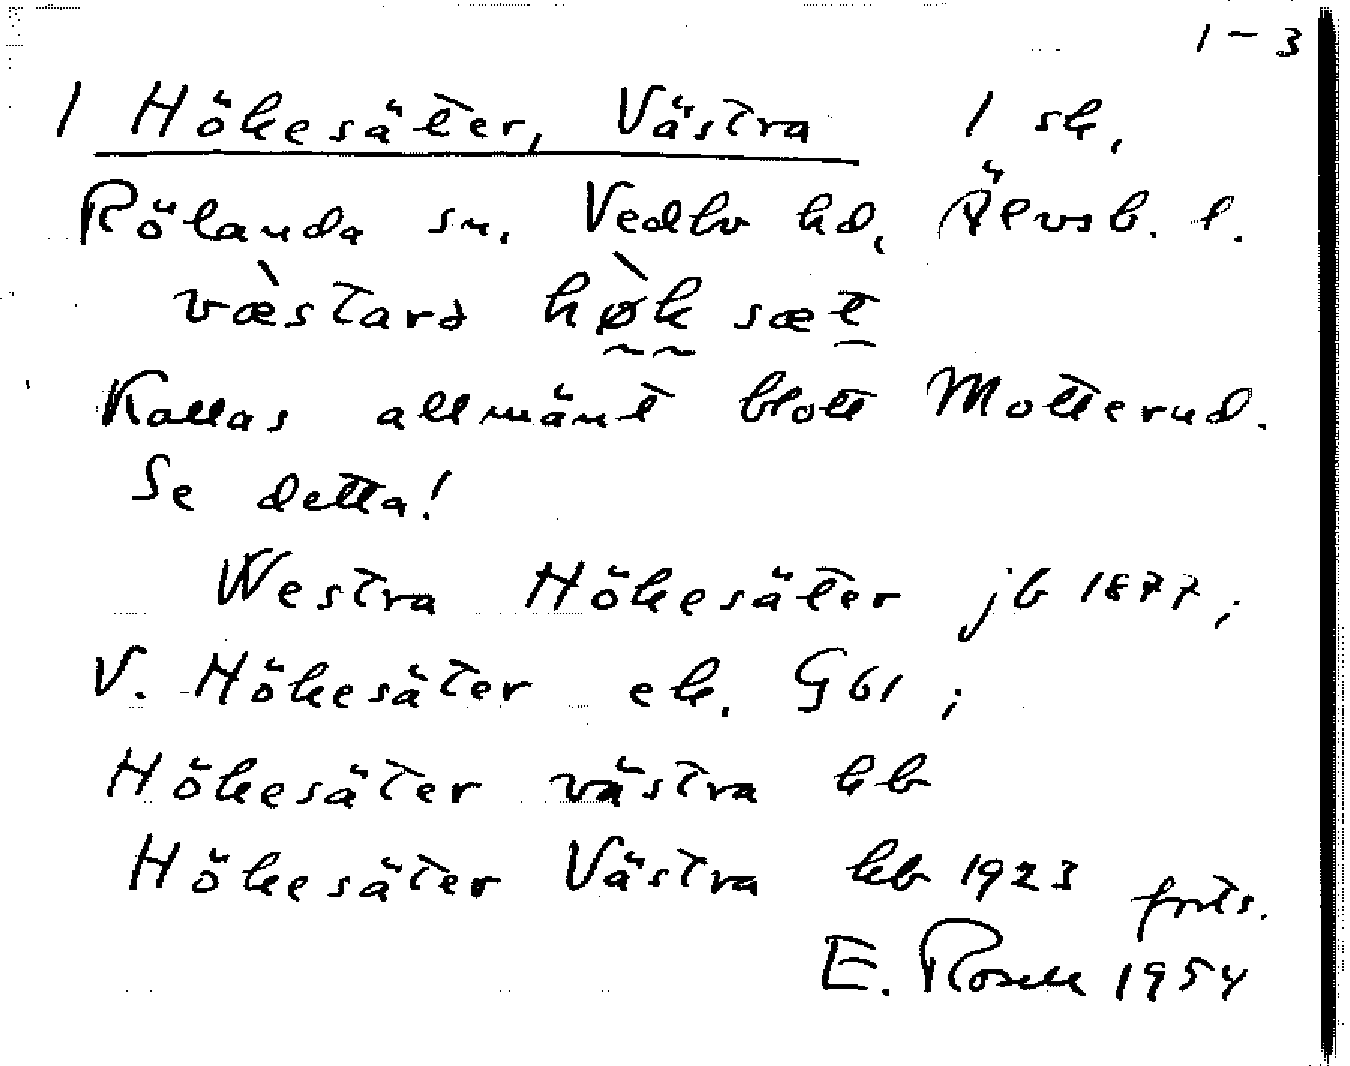 1-3
1 Hökesäter, Västra 1 sk.
Rölanda sn. Vedbo hd, Älvsb. l.
væ̀starə hø̀ksæt
Kallas allmänt blott Motterud.
Se detta!
Westra Hökesäter jb 1877;
V. Hökesäter ek. G 61;
Hökesäter västra kb
Hökesäter Västra kb 1923 forts.
E. Rosell 1954